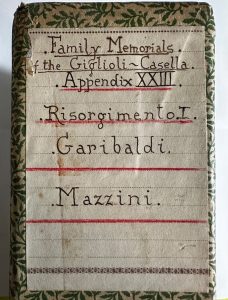 .Family Memorials.
of the Giglioli~Casella.
.Appendix XXIII.
.Risorgimento.I.
.Garibaldi.
.Mazzini.